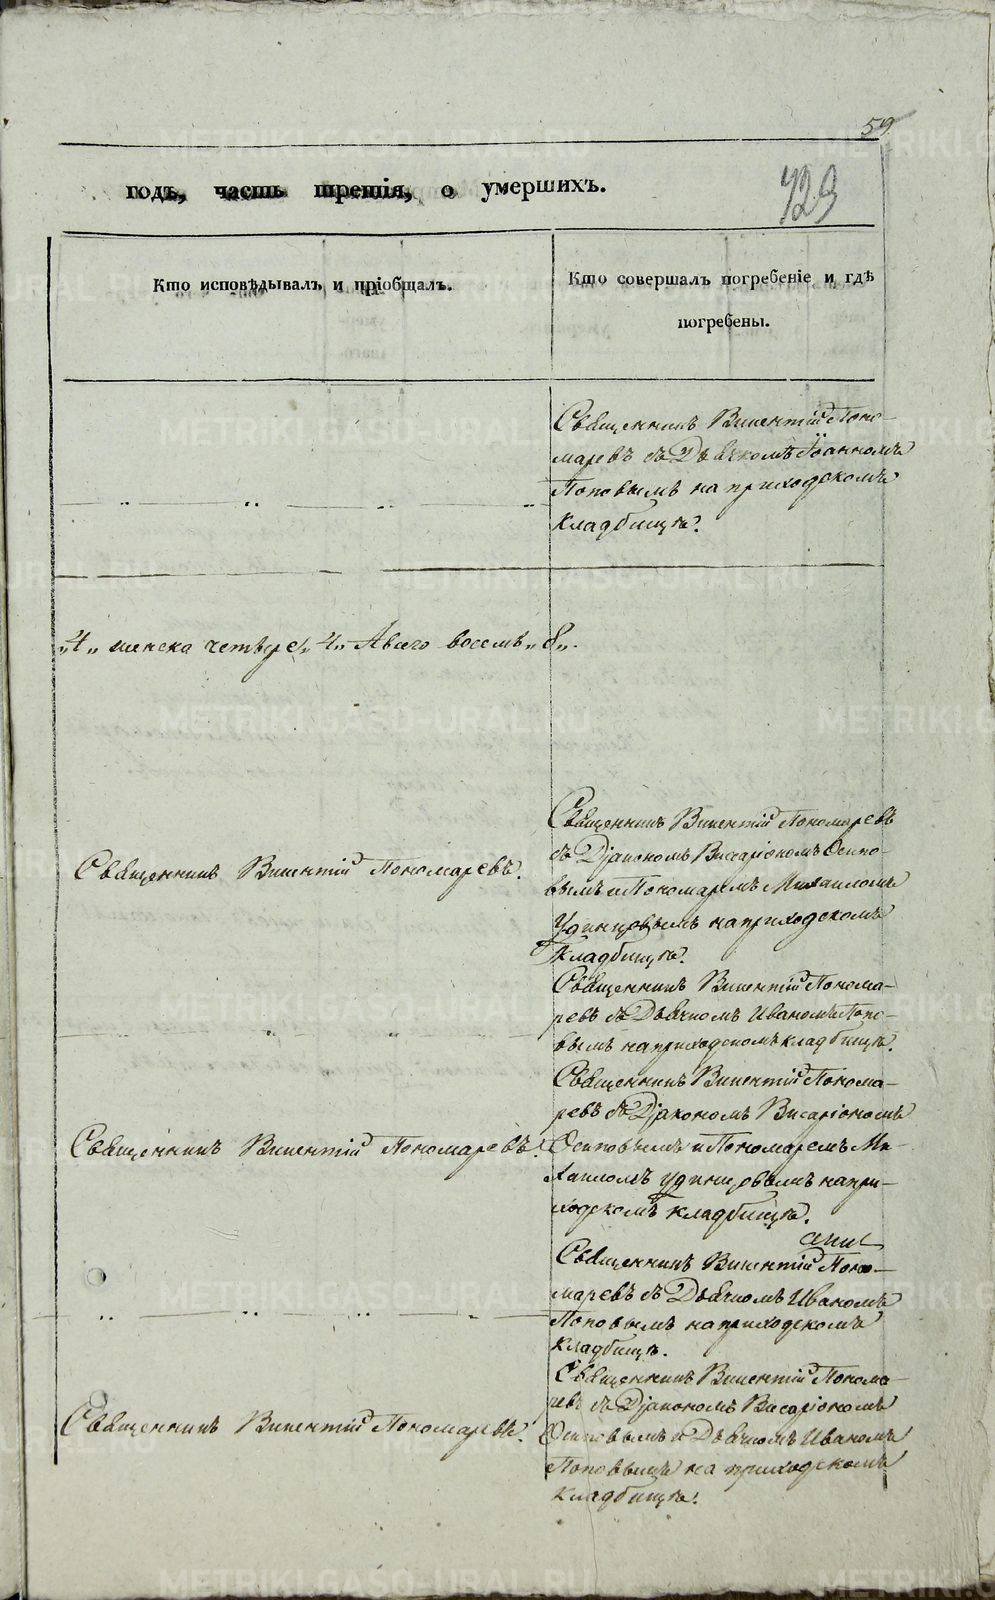 59
годъ, часть третія, о умершихъ.
729
Кто исповѣдывалъ и пріобщалъ.
Кто совершалъ погребеніе и гдѣ
погребены.
Священникъ Викентій Поно-
маревъ съ Дьячкомъ Іоанномъ
Поповымъ на приходскомъ
кладбищѣ.
„4„ женска четыре „4„ Авсего восемь „8„.
Священникъ Викентій Пономаревъ.
Священникъ Викентій Пономаревъ
съ Діакономъ Висаріономъ Осипо-
вымъ и Пономаремъ Михаиломъ
Удинцовымъ на приходскомъ
кладбищѣ.
Священникъ Викентій Понома-
ревъ съ Дьячкомъ Иваномъ Попо-
вымъ на приходскомъ кладбищѣ.
Священникъ Викентій Пономаревъ.
Священникъ Викентій Понома-
ревъ съ Діакономъ Висаріономъ
Осиповымъ и Пономаремъ Ми-
хаиломъ Удинцовымъ на при-
ходскомъ кладбищѣ.
Священникъ Викентій Поно-
маревъ съ Дьячкомъ Иваномъ
Поповымъ на приходскомъ
кладбищѣ.
Священникъ Викентій Пономаревъ.
Священникъ Викентій Понома-
ревъ съ Діакономъ Висаріономъ
Осиповымъ и Дьячкомъ Иваномъ
Поповымъ на приходскомъ
кладбищѣ.
METRIKI.GASO-URAL.RU